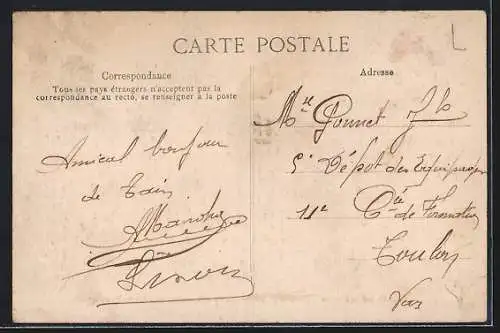 CARTE POSTALE
Correspondance
Tous les pays étrangers n'acceptent pas la
correspondance au recto, se renseigner à la poste
Adresse
Amical bonjour
de Tain
Mr Ponnet
5e Dépôt des Equipages
11e Cie de Formation
Toulon
Var